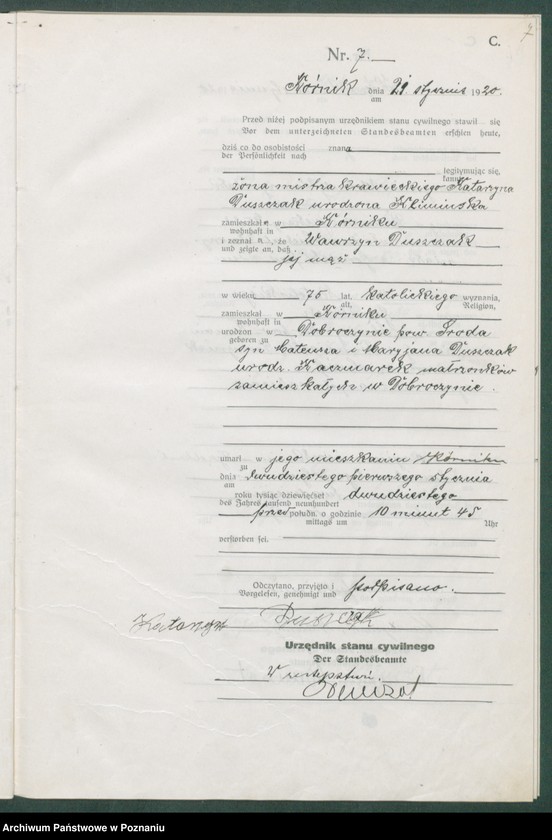 7
C.
Nr. 7.
Kórnik dnia 21 stycznia 1920.
am
Przed niżej podpisanym urzędnikiem stanu cywilnego stawił się
Vor dem unterzeichneten Standesbeamten erschien heute,
dziś co do osobistości znana
der Persönlichkeit nach
legitymując się,
kannt,
żona mistrza krawieckiego Katarzyna
Duszczak urodzona Klimińska
zamieszkałe w Kórniku
wohnhaft in
i zeznał a że Wawrzyn Duszczak
und zeigte an, daß
jej mąż
w wieku 75 lat, katolickiego wyznania,
alt, Religion,
zamieszkał w Kórniku
wohnhaft in
urodzon w Dobroczynie pow. Środa
geboren zu
syn Mateusza i Maryjana Duszczak
urodz. Kaczmarek małrzonków
zamieszkałych w Dobroczynie.
umarł w jego mieszkaniu Kórniku
zu
dnia dwudziestego pierwszego stycznia
am
roku tysiąc dziewięćset dwudziestego
des Jahres tausend neunhundert
przed połudn. o godzinie 10 minut 45
mittags um Uhr
verstorben sei.
Odczytano, przyjęto i podpisano.
Vorgelesen, genehmigt und
Katarzyna Duszczak
Urzędnik stanu cywilnego
Der Standesbeamte
W zastępstwie.
Archiwum Państwowe w Poznaniu